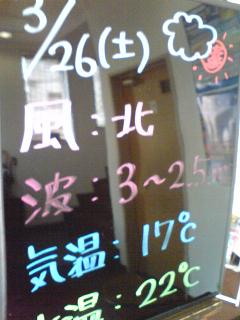 3/26(土)
風：北
波：3～2.5m
気温：17℃
水温：22℃